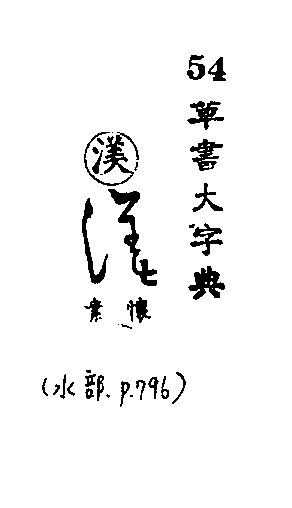 54 草書大字典
渼
懷素
(水部. p.796)